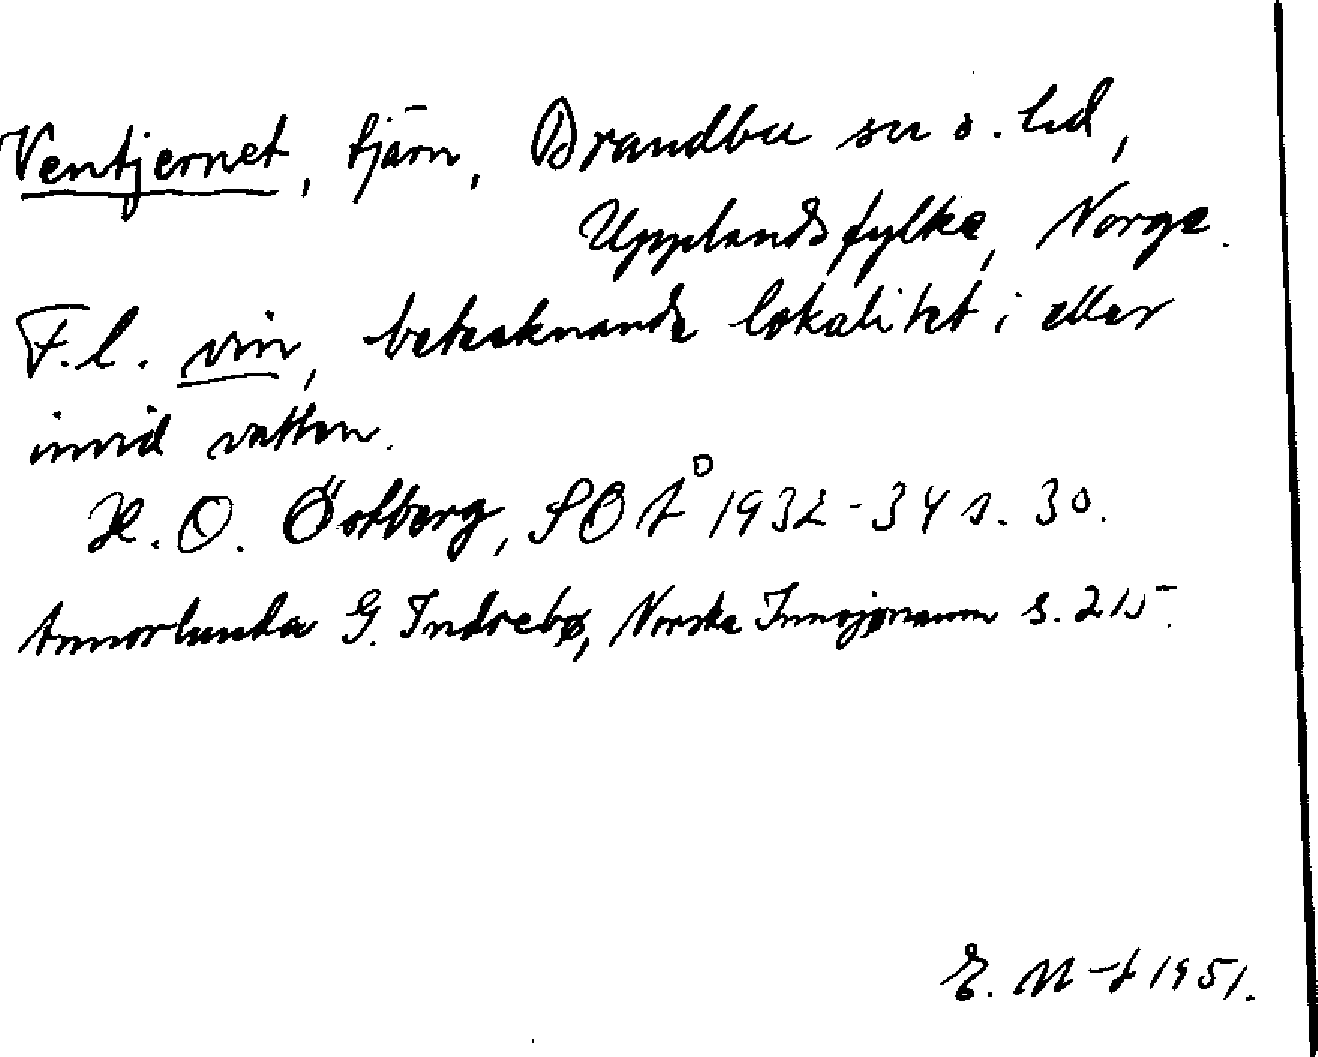 Ventjernet, tjärn, Brandbu sn o. hd,
Upplandsfylke, Norge.
F.l. vin, betecknande lokalitet i eller
invid vatten.
H. O. Östberg, SOÅ 1932-34 s. 30.
Annorlunda G. Indrebø, Norske Innsjønamn s. 215.
E. N-t 1951.